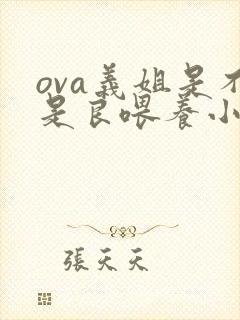 ova義姐是不
是良喂养小
張天天